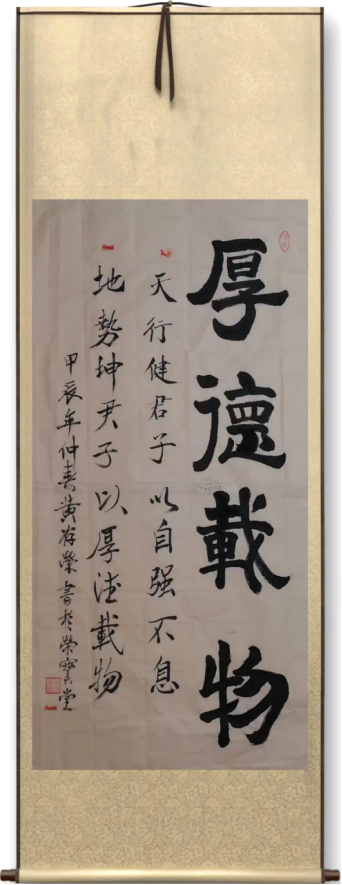 厚德載物
天行健君子以自强不息
地勢坤君子以厚德載物
甲辰年仲春黄存榮書於榮寶堂